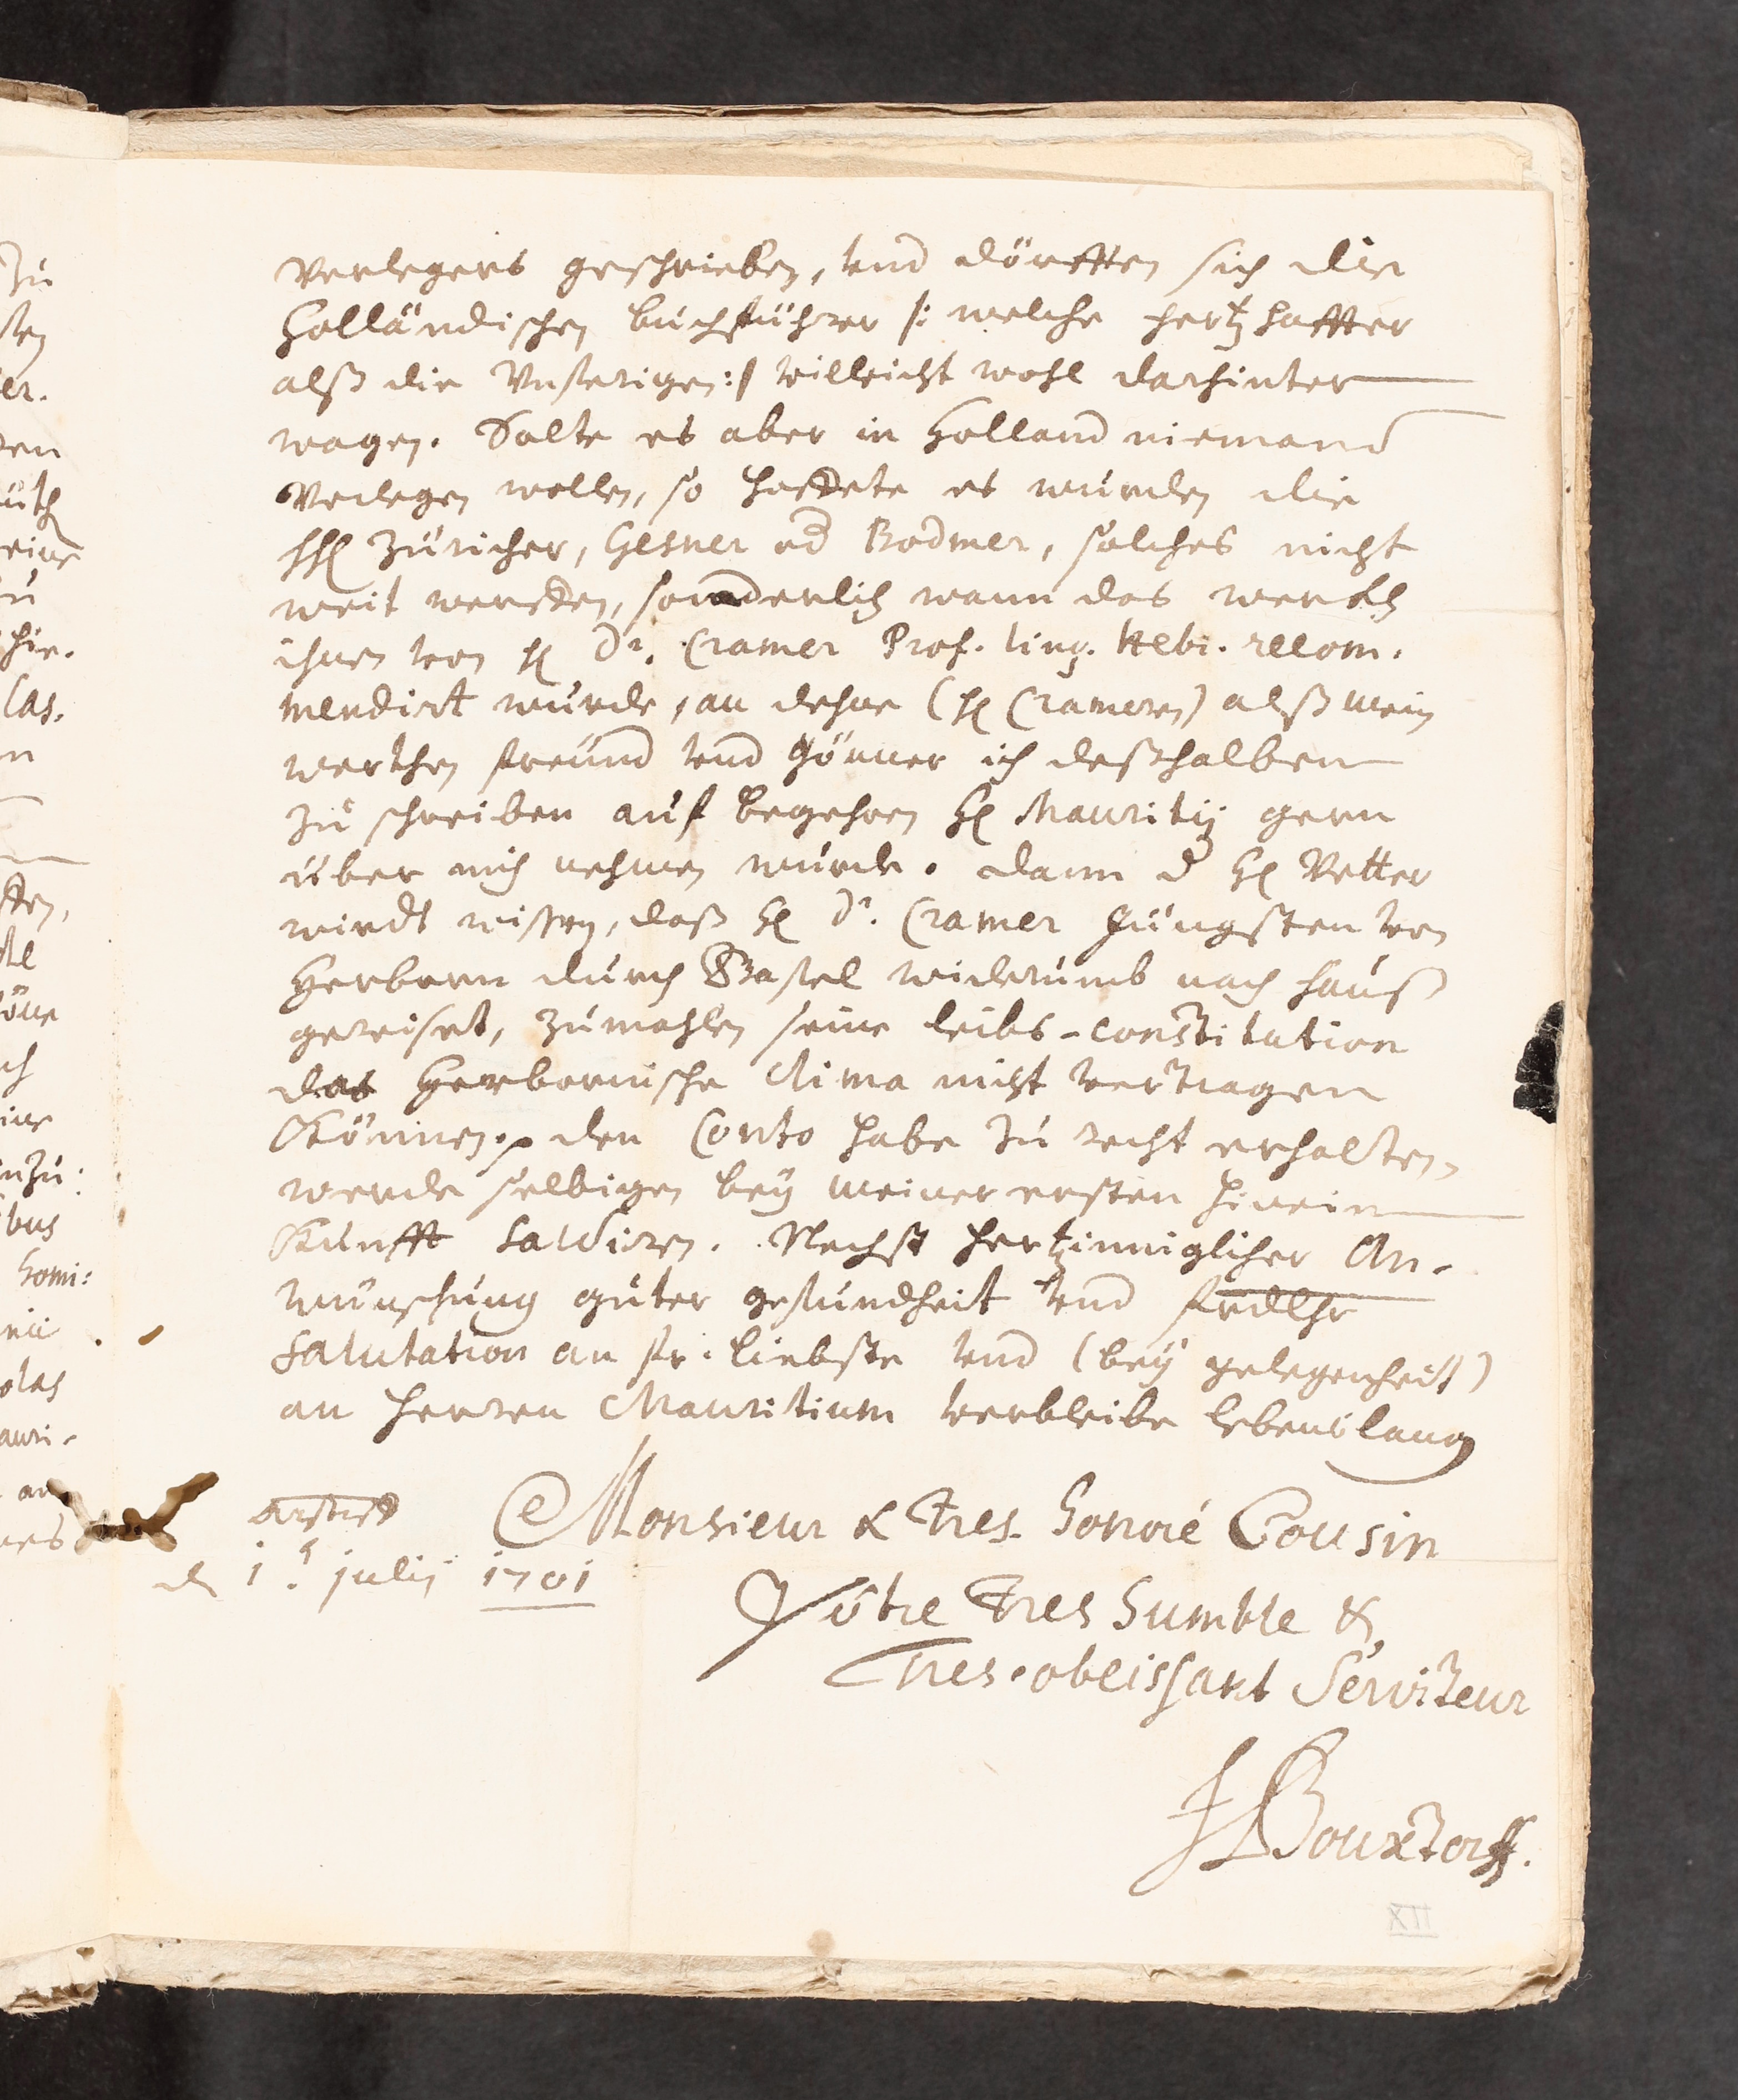 Verlegers geschrieben, und dörfften sich die
Holländischen buchführer |: welche hertzhaffter
alß die Unserigen :| villeicht wohl darhinter
wagen. Solte es aber in Holland niemand
Verlegen wollen, so hoffete es wurden die
HH Züricher, Gesner od Bodmer, solches nicht
weit werffen, sonderlich wann das werckh
ihnen von H Dr. Cramer Prof. ling. Hebr. recom-
mendirt wurde, an dehne (H Cramern) alß mein
werthen freund und Gönner ich deßhalben
zu schreiben auf begehren H Mauritij gern
über mich nehmen wurde. dann d H Vetter
wirdt wissen, daß H Dr. Cramer Jüngsten von
Herborn durch Basel widerumb nach hauß
gereiset, zumahlen seine leibs-constitution
das Herbornische Clima nicht vertragen
Können. den Conto habe zu recht erhalten,
werde selbigen bey meiner ersten hinein
Kunfft saldiren. Nechst hertzinniglicher An-
wünschung guter gesundheit und frdlche
Salutation an fr. liebste und (bey gelegenheit)
an Herren Mauritium verbleibe lebenslang
Monsieur & Tres-honoré Cousin
Arstorff
d 1.t julij 1701
Vôtre Tres humble &
Tres-obeissant Serviteur
JBouxtorff.
XII
zu
er.
las.
n
bus
homi:
olas
auri-